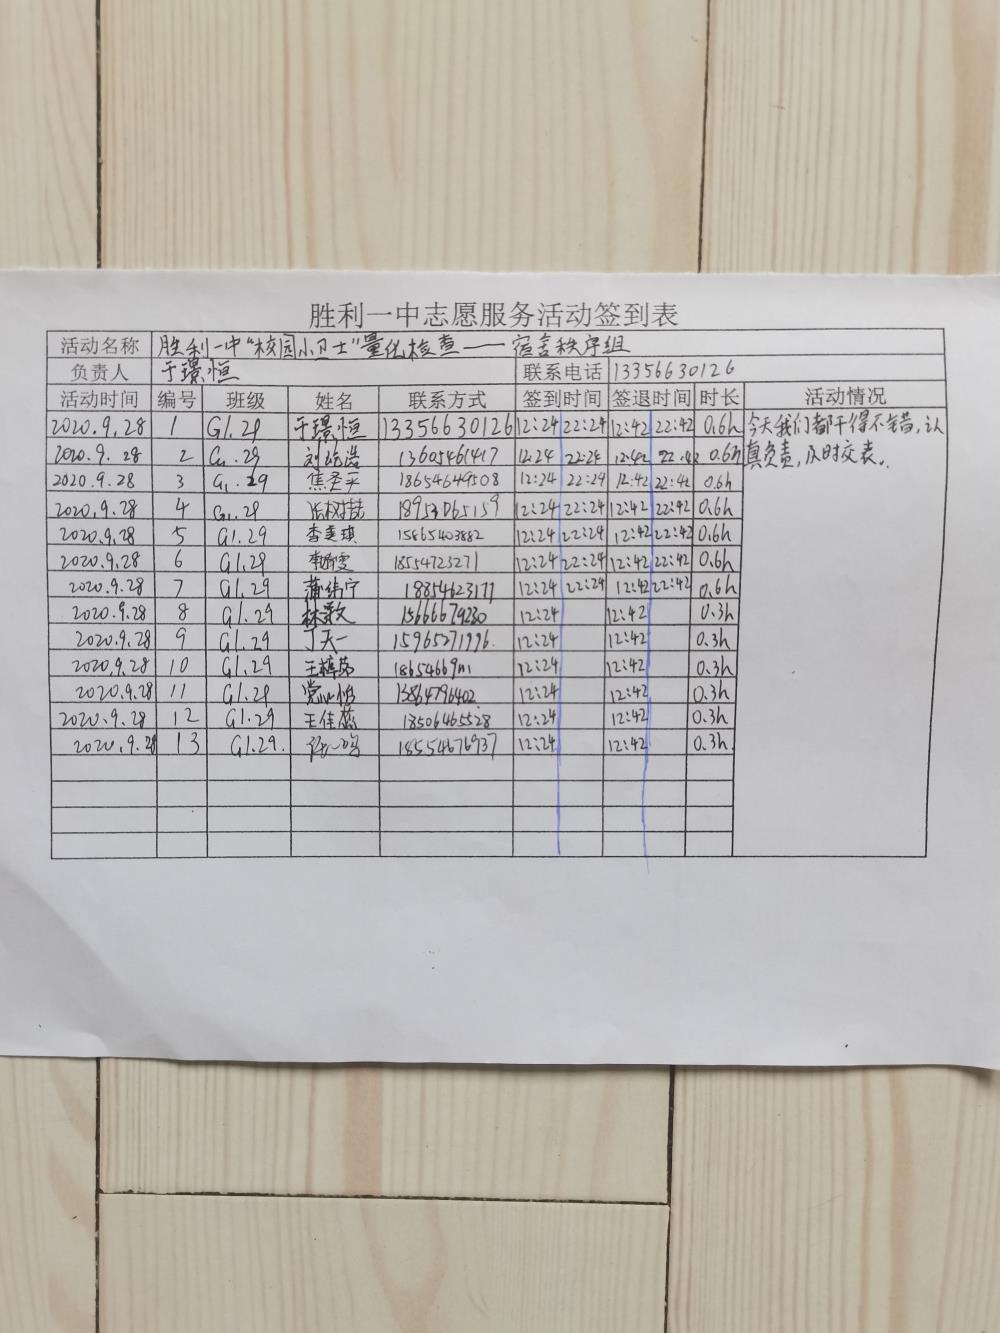 胜利一中志愿服务活动签到表
活动名称 胜利一中“校园小卫士”量化检查——宿舍秩序组
负责人 于璟恒 联系电话 13356630126
活动时间 编号 班级 姓名 联系方式 签到时间 签退时间 时长 活动情况
2020.9.28 1 G1.29 于璟恒 13356630126 12:24 22:24 12:42 22:42 0.6h 今天我们都干得不错，认
2020.9.28 2 G1.29 13605461417 12:24 22:24 12:42 22:42 0.6h 真负责，及时交表。
2020.9.28 3 G1.29 18654649508 12:24 22:24 12:42 22:42 0.6h
2020.9.28 4 G1.29 18953065159 12:24 22:24 12:42 22:42 0.6h
2020.9.28 5 G1.29 李美琪 15865403882 12:24 22:24 12:42 22:42 0.6h
2020.9.28 6 G1.29 18554723271 12:24 22:24 12:42 22:42 0.6h
2020.9.28 7 G1.29 蒲伟宁 18854623177 12:24 22:24 12:42 22:42 0.6h
2020.9.28 8 G1.29 15666679230 12:24 12:42 0.3h
2020.9.28 9 G1.29 丁天一 15965271996. 12:24 12:42 0.3h
2020.9.28 10 G1.29 12:24 12:42 0.3h
2020.9.28 11 G1.29 13864796402 12:24 12:42 0.3h
2020.9.28 12 G1.29 王佳蕊 18506465528 12:24 12:42 0.3h
2020.9.28 13 G1.29. 18554676937 12:24 12:42 0.3h